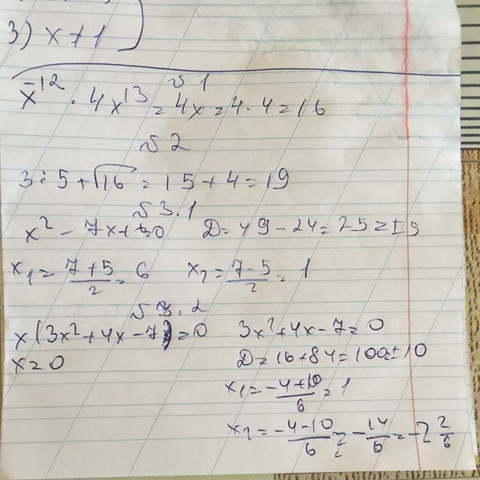 3) x ≠ 1
√1
x^-12 · 4x^13 = 4x = 4·4 = 16
√2
3·5 + √16 = 15 + 4 = 19
√3.1
x² - 7x + 6 = 0 D = 49 - 24 = 25 = ±5
x₁ = (7+5)/2 = 6 x₂ = (7-5)/2 = 1
√3.2
x(3x² + 4x - 7) = 0 3x² + 4x - 7 = 0
x = 0 D = 16 + 84 = 100 = ±10
x₁ = (-4+10)/6 = 1
x₂ = (-4-10)/6 = -14/6 = -2 2/6